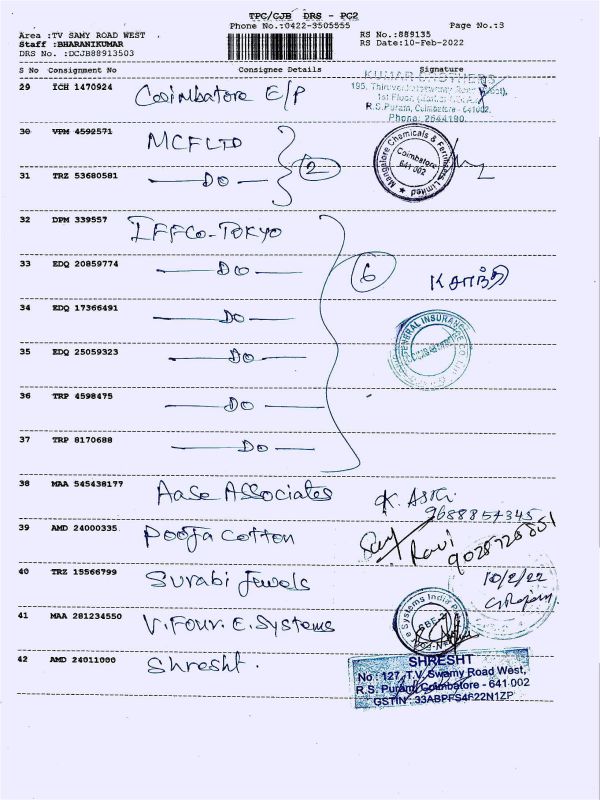 TPC/CJB DRS - PC2
Phone No.:0422-3505555 Page No.:3
Area :TV SAMY ROAD WEST RS No.:889135
Staff :BHARANIKUMAR RS Date:10-Feb-2022
DRS No. :DCJB88913503
S No Consignment No Consignee Details Signature
29 ICH 1470924 Coimbatore E/P
KUMAR BROTHERS
1st Floor,
R.S.Puram, Coimbatore - 641002.
Phone: 2544190.
30 VPM 4592571 MCF LTD
Mangalore Chemicals & Fertilizers Limited
Coimbatore
641 002
31 TRZ 53680581 — Do —
2
32 DPM 339557 IFFCo-TOKYO
33 EDQ 20859774 — Do —
6
K சாந்தி
34 EDQ 17366491 — Do —
GENERAL INSURANCE CO. Ltd
35 EDQ 25059323 — Do —
36 TRP 4598475 — Do —
37 TRP 8170688 — Do —
38 MAA 545438177 Aase Associates
9688857345
39 AMD 24000335 Pooja Cotton
Ravi
40 TRZ 15566799 Surabi Jewels
10/2/22
41 MAA 281234550 V. Four. E. Systems
e Systems India P
42 AMD 24011000 Shresht.
SHRESHT
No : 127, T.V. Swamy Road West,
R.S. Puram, Coimbatore - 641 002
GSTIN : 33ABPFS4622N1ZP